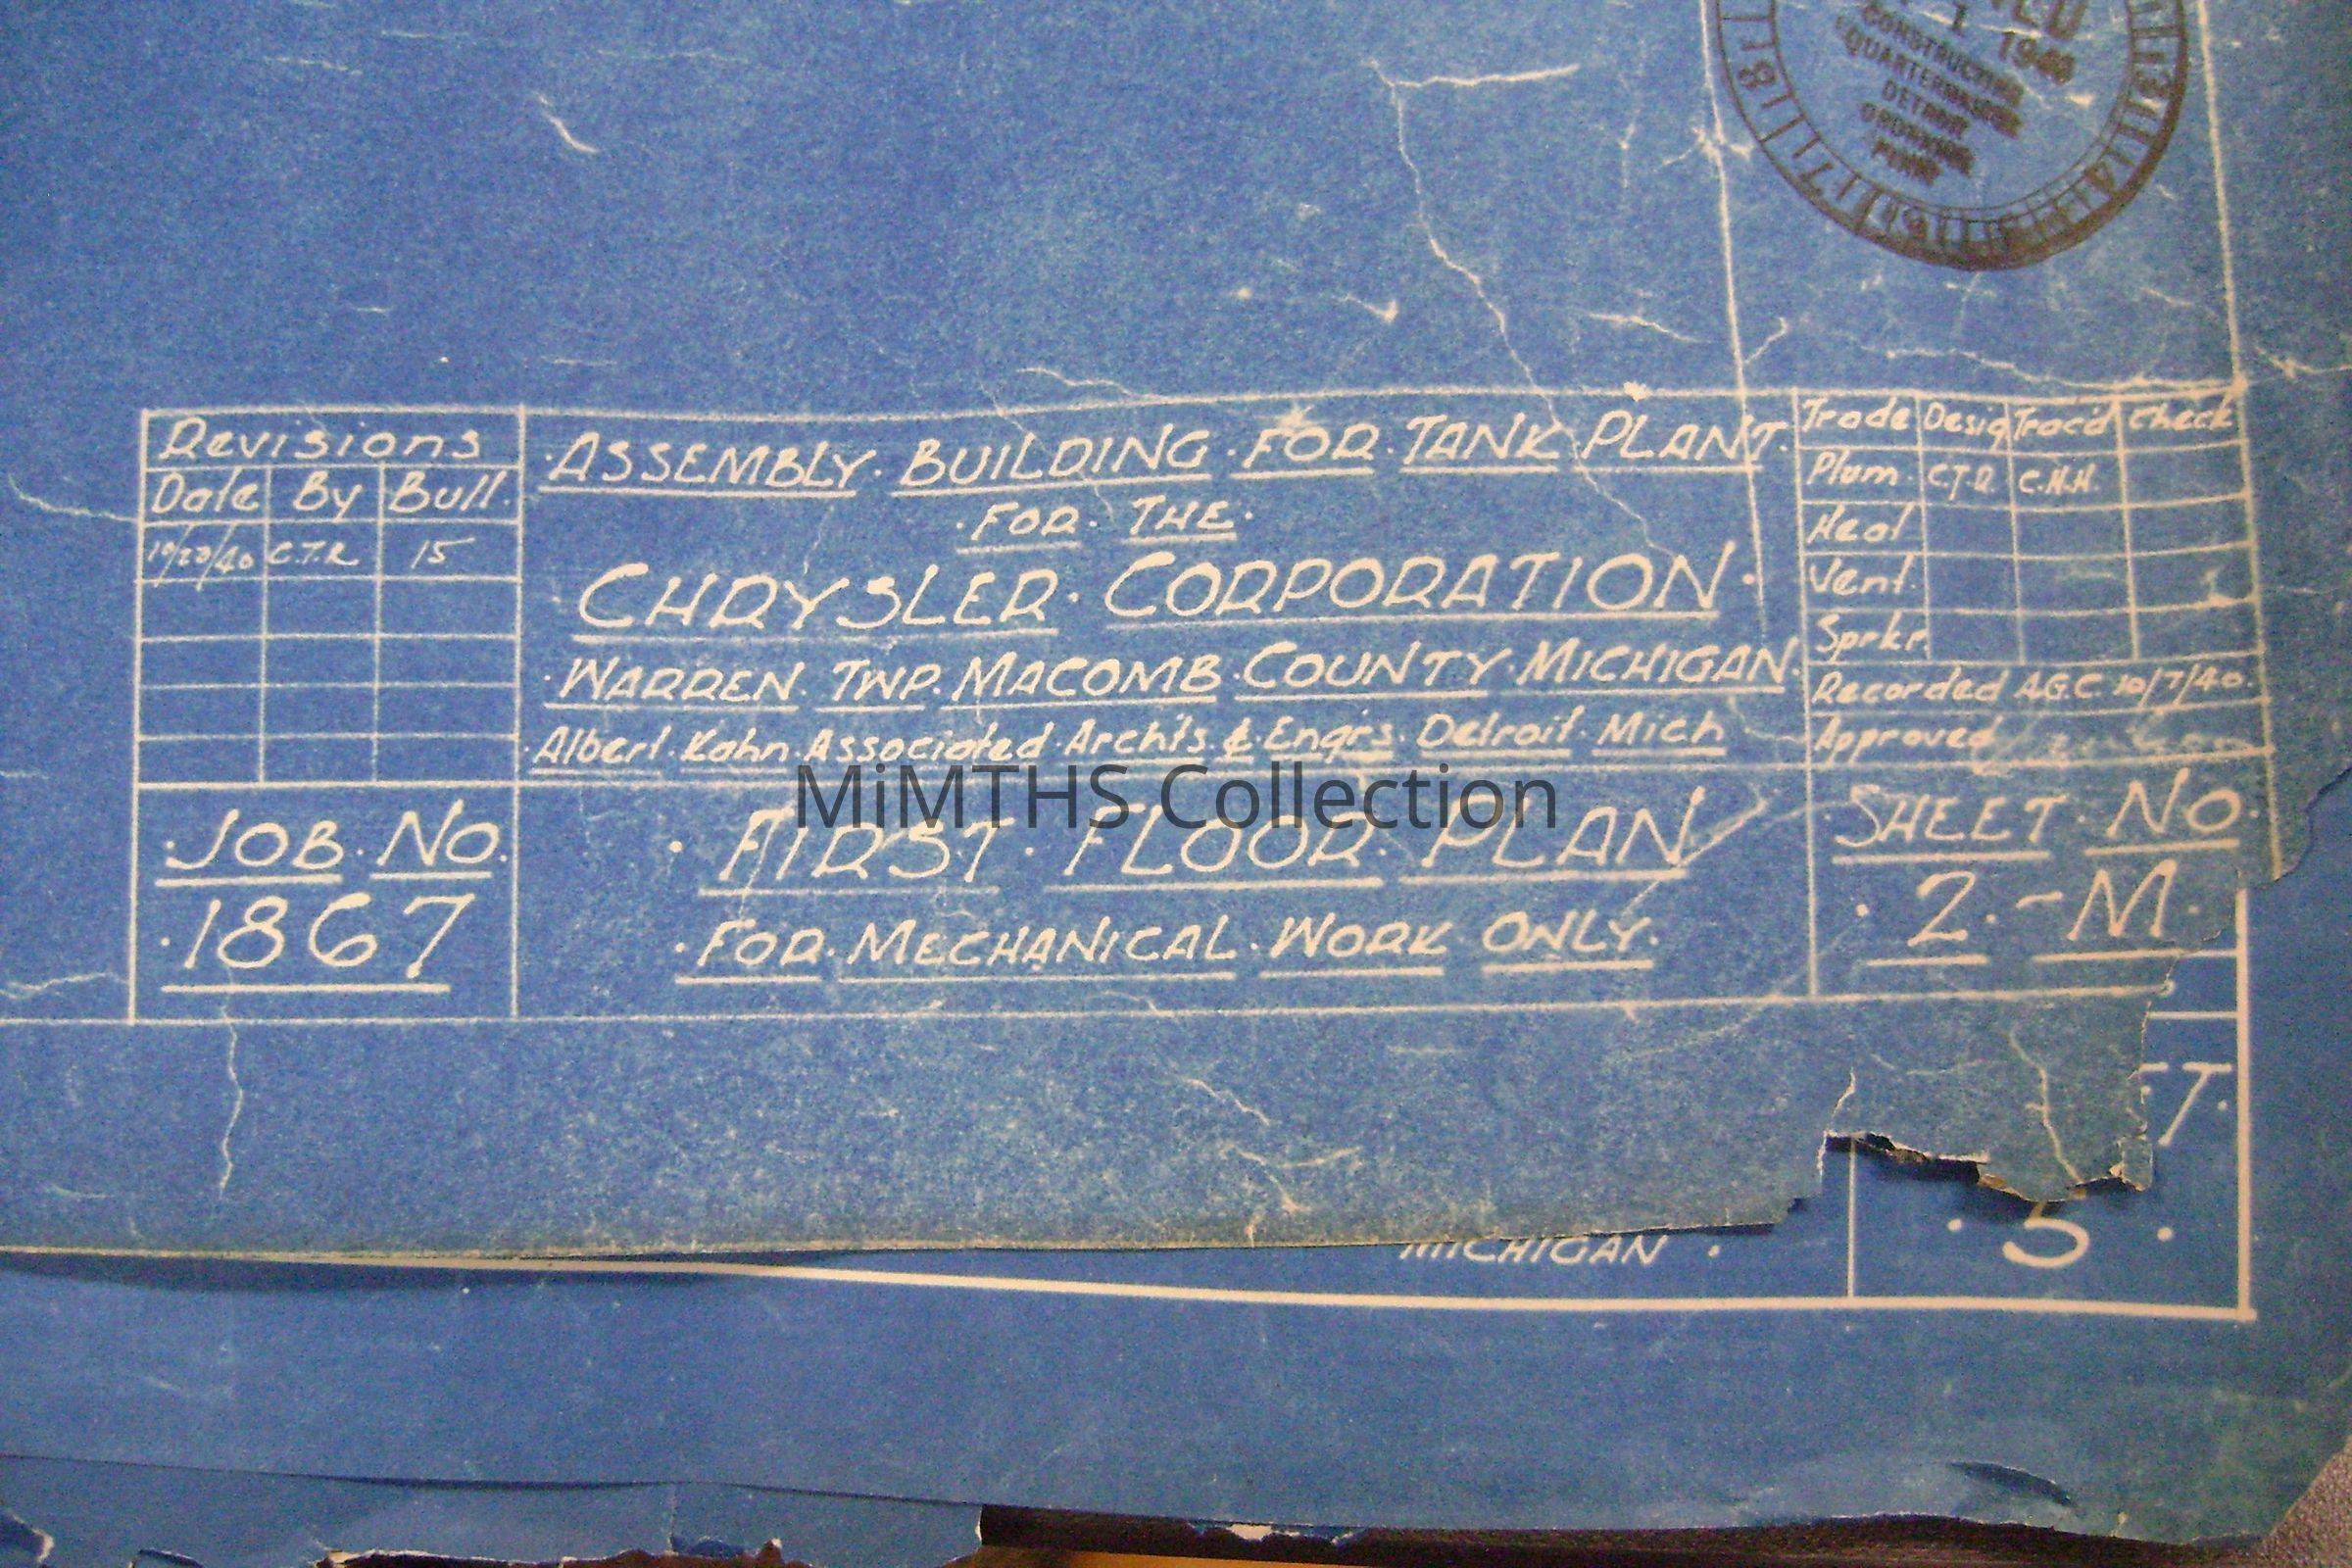 1 1940
CONSTRUCTING
QUARTERMASTER
DETROIT
ORDNANCE
PLANT
13 14 16 17 18
Revisions
Date By Bull.
C.T.R. 15
·ASSEMBLY· BUILDING ·FOR· TANK PLANT·
·FOR· THE·
CHRYSLER· CORPORATION·
·WARREN· TWP· MACOMB· COUNTY· MICHIGAN·
·Albert· Kahn· Associated· Archts· & Engrs· Detroit· Mich
Trade Desig Trac'd Check
Plum. C.T.R. C.H.H.
Heat
Vent.
Sprkr.
Recorded A.G.C. 10/7/40.
Approved
·JOB· NO.
·1867
·FIRST· FLOOR· PLAN·
·FOR· MECHANICAL· WORK ONLY·
·SHEET· NO·
·2·-M·
MiMTHS Collection
MICHIGAN ·
· 5 ·